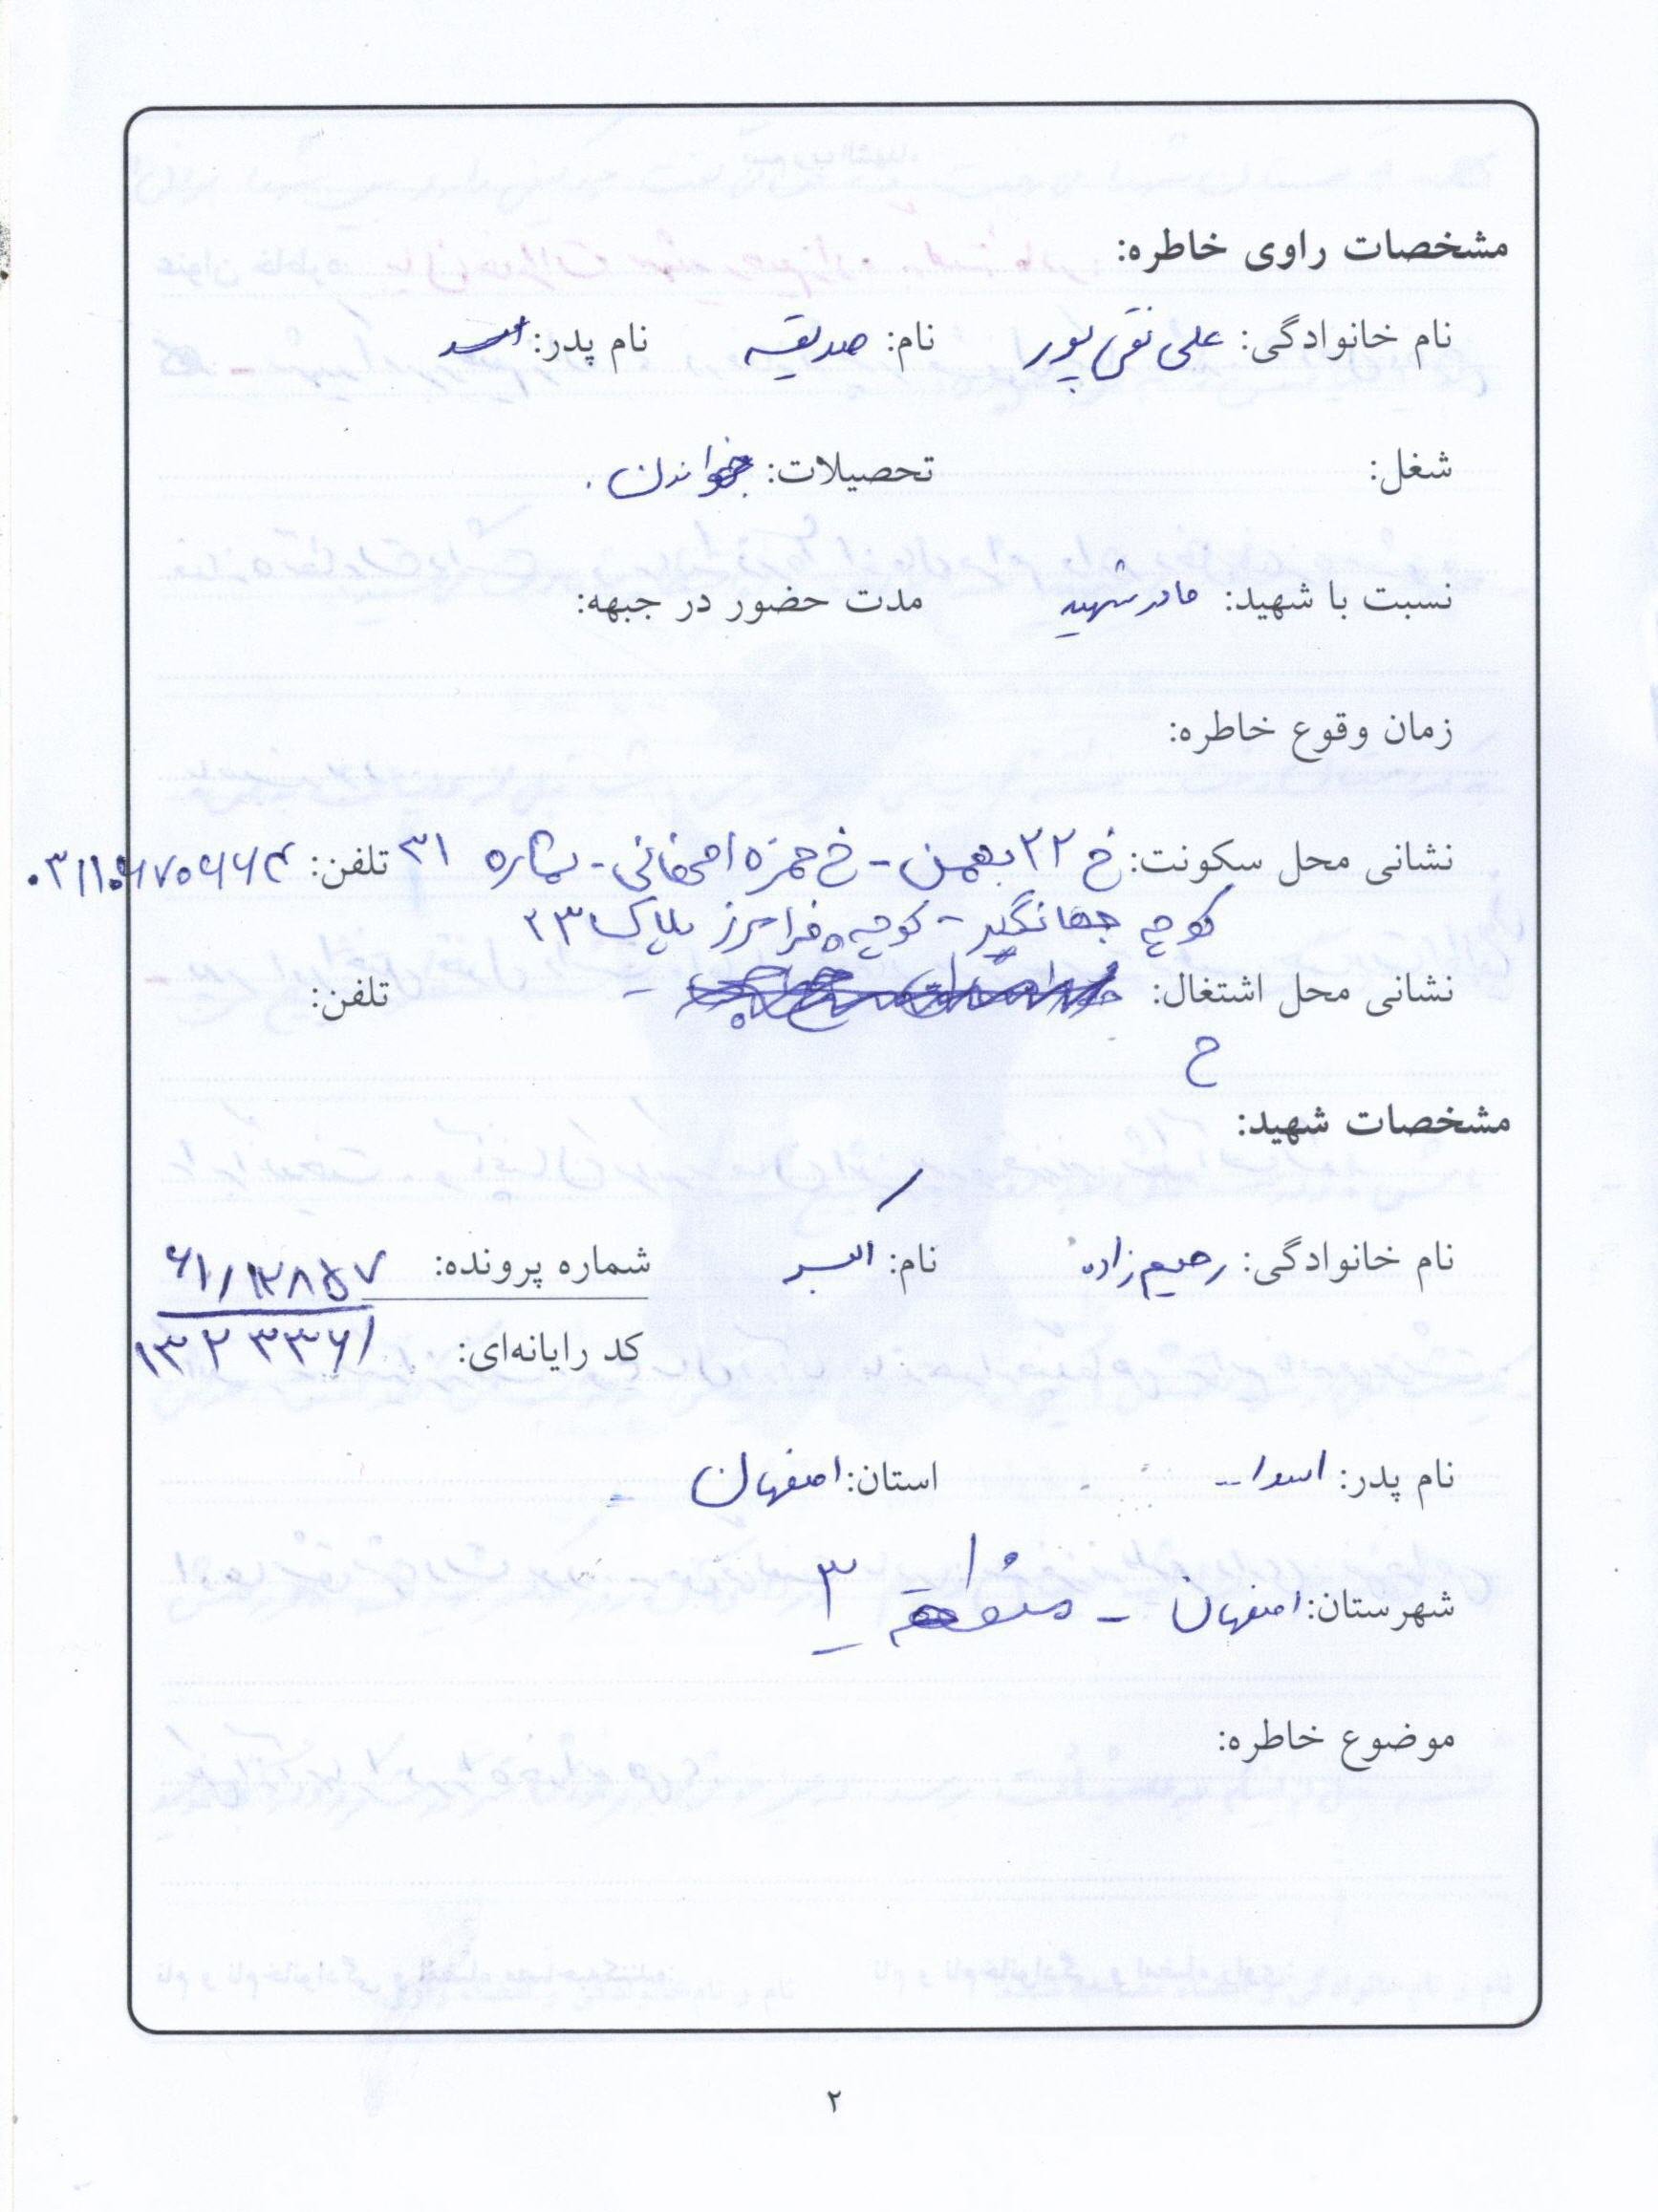 مشخصات راوی خاطره:
نام خانوادگی: علی نقی پور نام: صدیقه نام پدر:
شغل: تحصیلات: خواندن.
نسبت با شهید: مادر شهید مدت حضور در جبهه:
زمان وقوع خاطره:
نشانی محل سکونت: خ ۲۲ بهمن - خ حمزه اصفهانی - شماره ۳۱ تلفن:
کوچه جهانگیر - کوچه فرامرز پلاک ۲۳
نشانی محل اشتغال: تلفن:
ح
مشخصات شهید:
نام خانوادگی: رحیم زاده نام: اکبر شماره پرونده:
کد رایانه‌ای: ۱۳۲۳۳۶۱
نام پدر: استان: اصفهان
شهرستان: اصفهان - منطقه ۳
موضوع خاطره:
۲